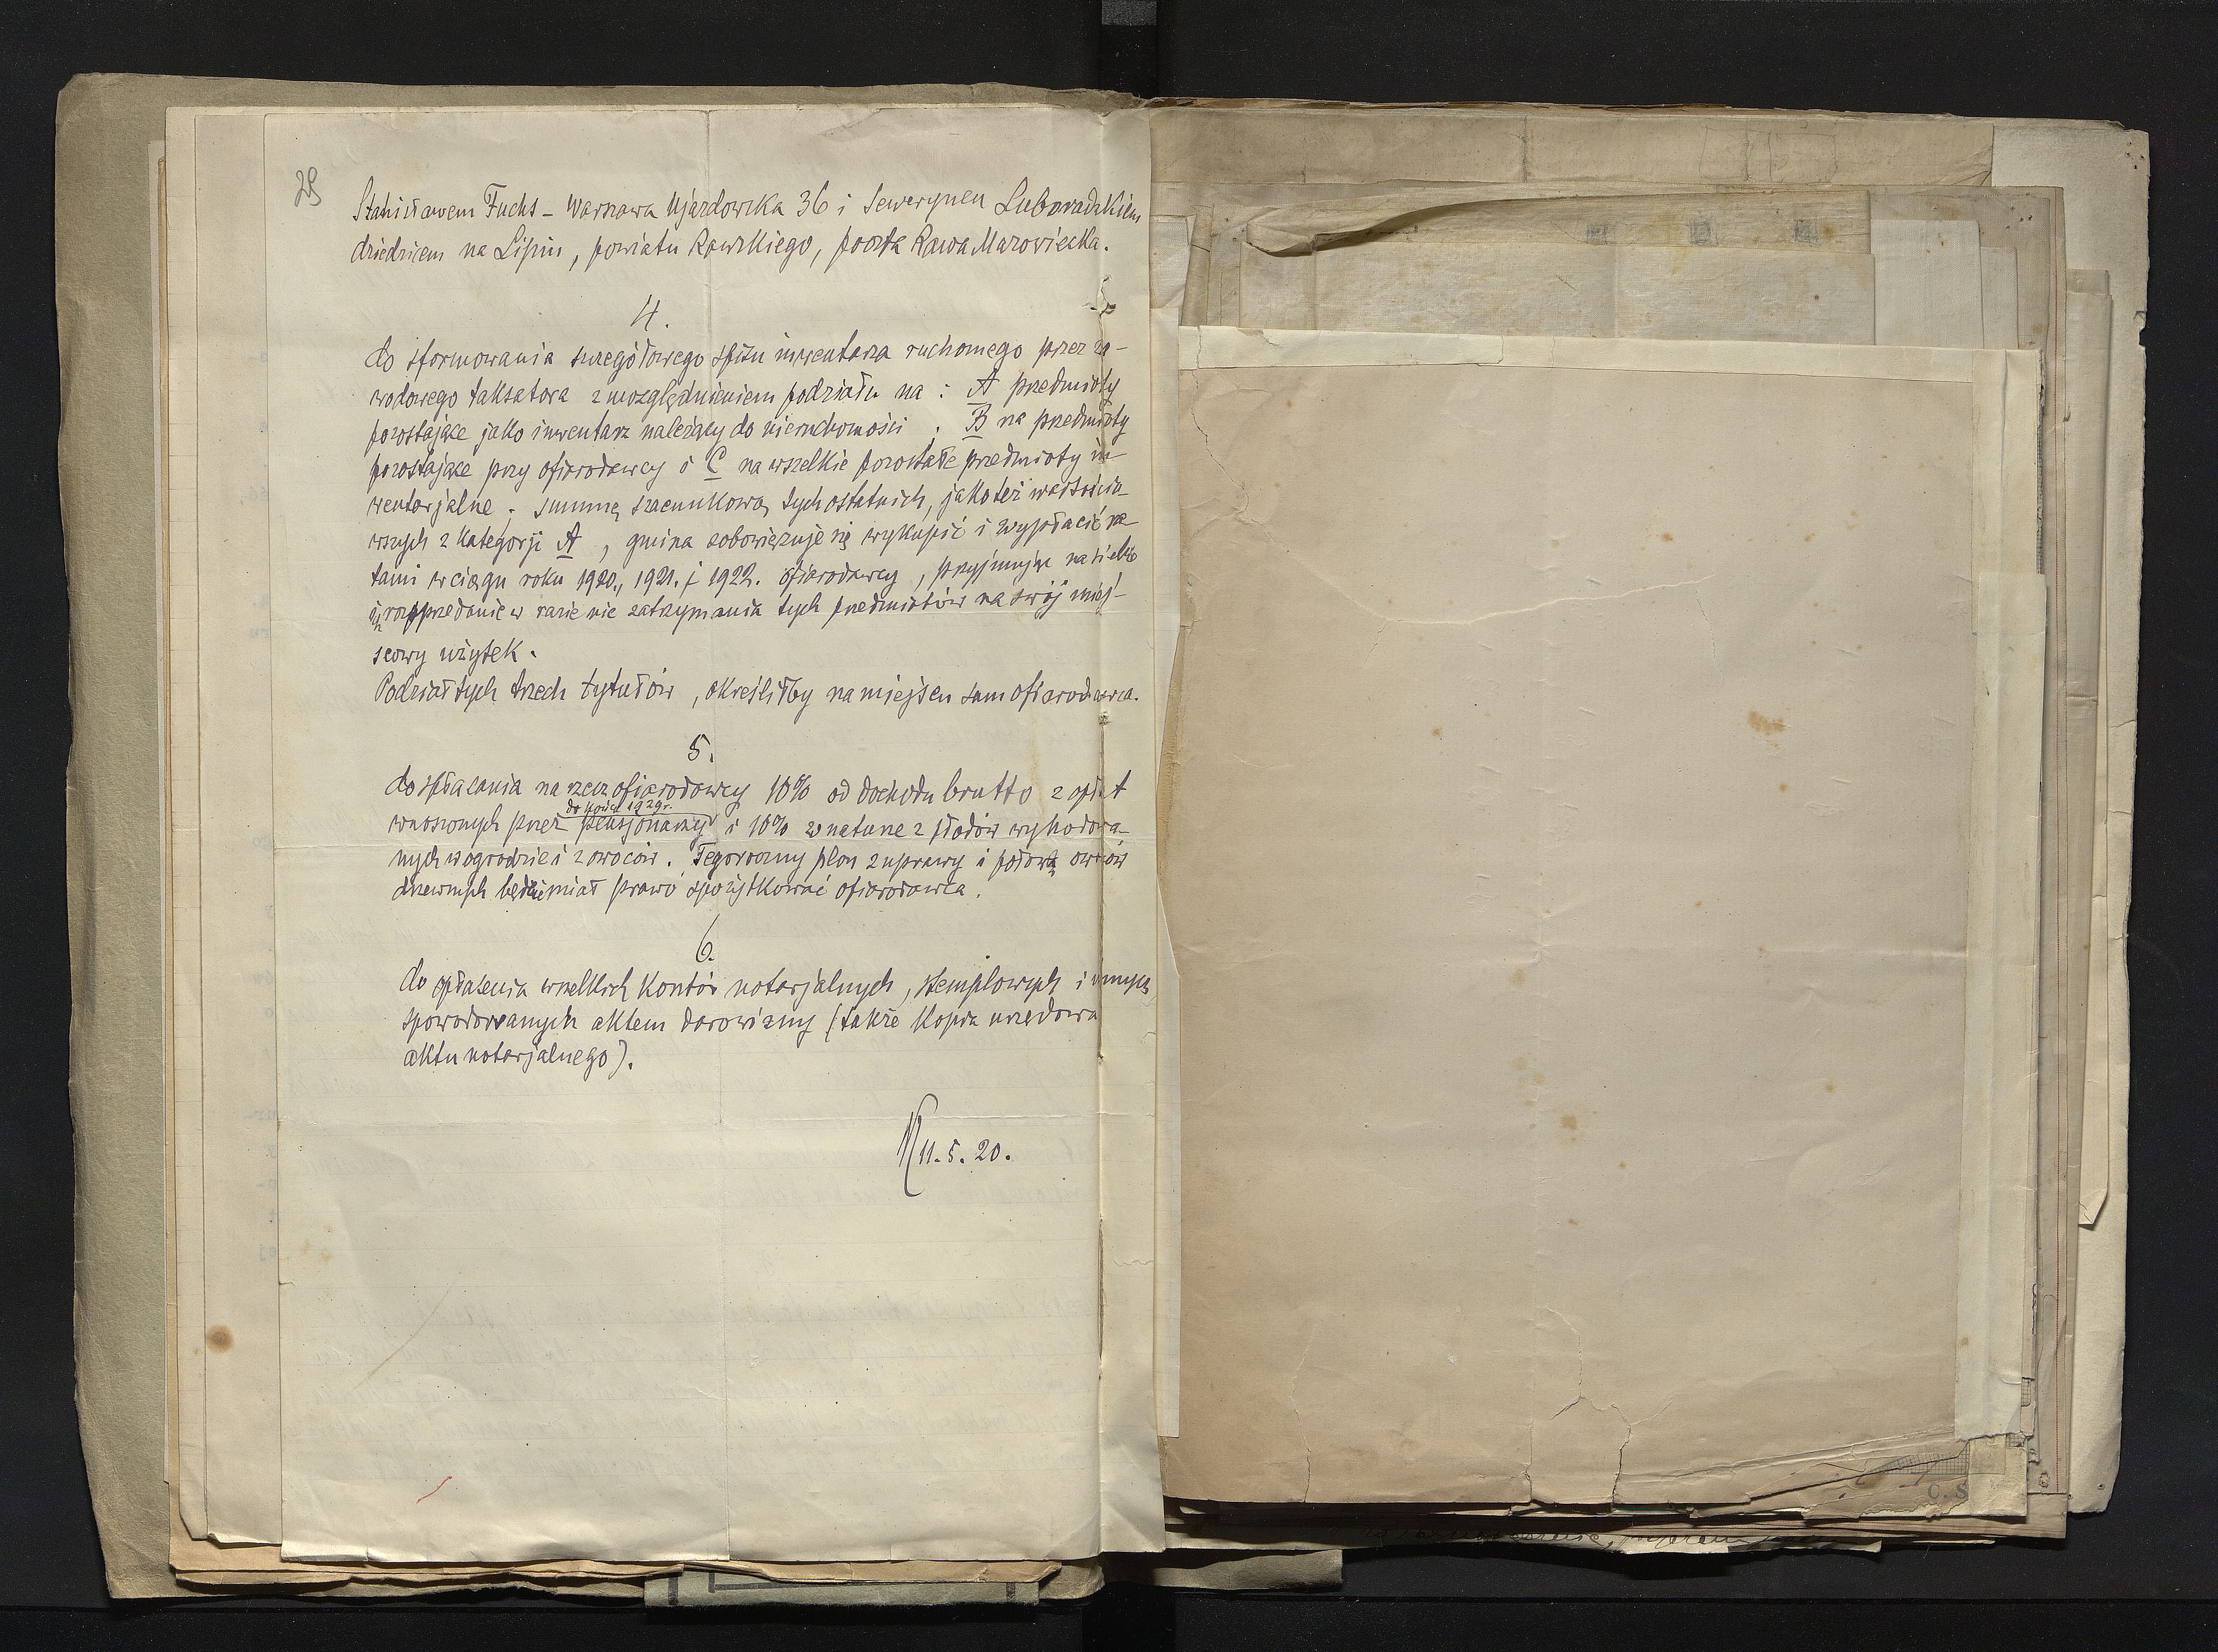 29
Stanisławem Fuchs – Warszawa Ujazdowska 36 i Sewerynem Luboradzkiem
dziedzicem na Lipin, powiatu Rawskiego, poczta Rawa Mazowiecka.
4.
do sformowania szczegółowego spisu inwentarza ruchomego przez za-
wodowego taksatora z uwzględnieniem podziału na : A przedmioty
pozostające jako inwentarz należący do nieruchomości . B na przedmioty
pozostające przy ofiarodawcy i C na wszelkie pozostałe przedmioty in-
wentarjalne . summę szacunkową tych ostatnich, jakoteż wartościo-
wszych z kategorji A , gmina zobowiązuje się wykupić i wypłacić ra-
tami w ciągu roku 1920., 1921. i 1922. ofiarodawcy , przyjmując na siebie
ich rozprzedanie w razie nie zatrzymania tych przedmiotów na swój miej-
scowy użytek .
Podział tych trzech tytułów , określiłby na miejscu sam ofiarodawca.
5.
do spłacania na rzecz ofiarodawcy 10% od dochodu brutto z opłat
do końca 1929 r.
wnoszonych przez pensjonarzy i 10% w naturze z płodów wyhodowa-
nych w ogrodzie i z owoców . Tegoroczny plon z uprawy i połową owoców
drzewnych będzie miał prawo spożytkować ofiarodawca .
6.
do opłacenia wszelkich kosztów notarjalnych , stemplowych i innych
spowodowanych aktem darowizny (także kopia urzędowa
aktu notarjalnego).
11. 5. 20.
C. S